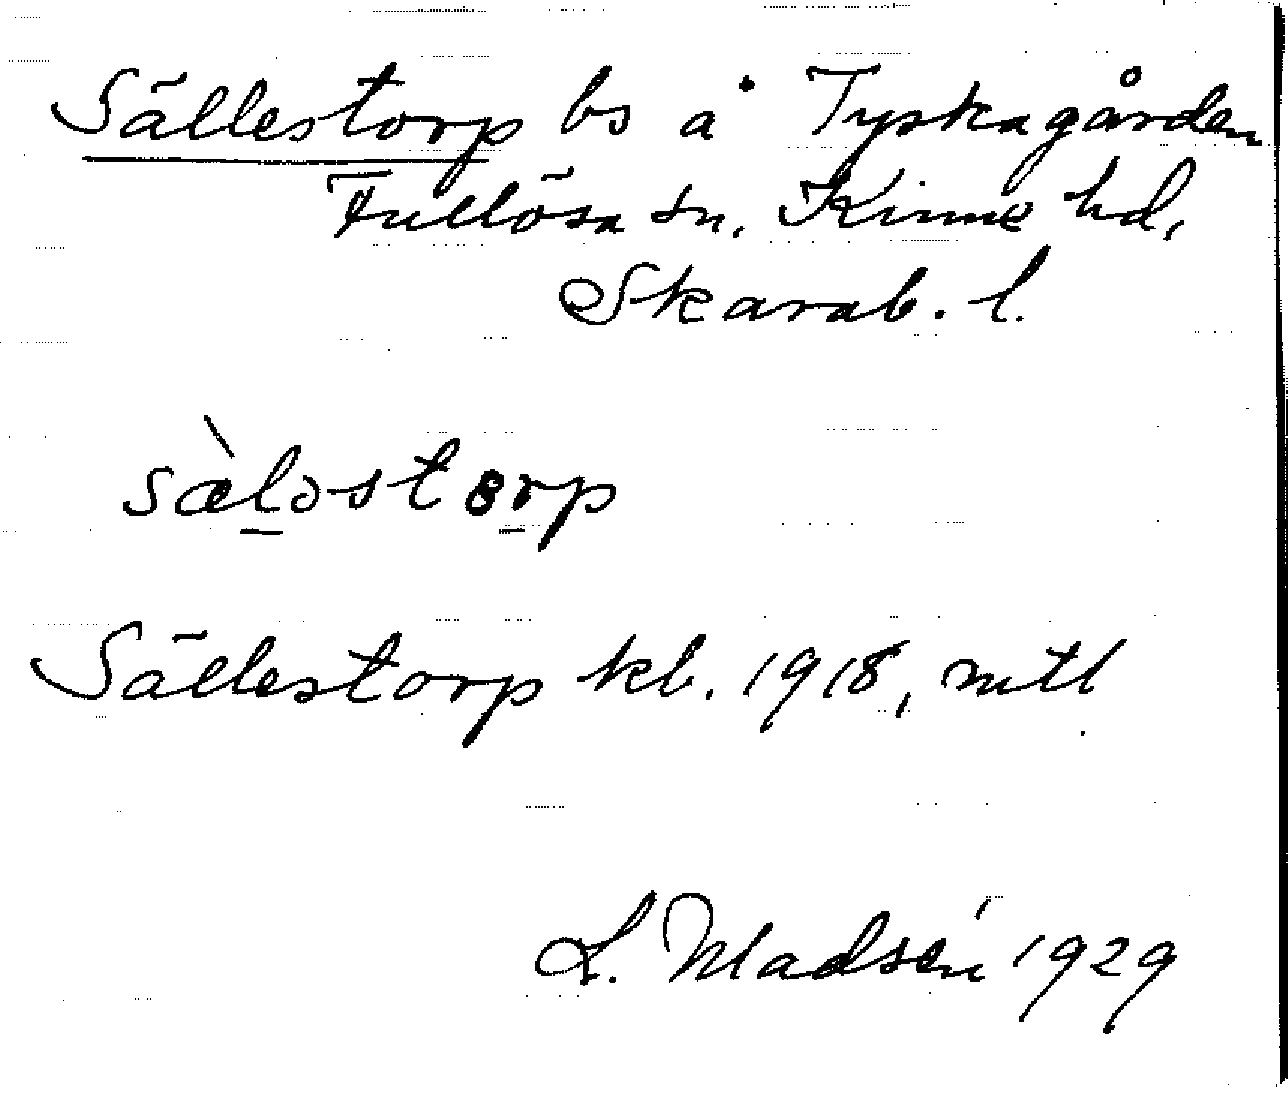 Sällestorp bs å Tyskagården
Fullösa sn. Kinne hd,
Skarab. l.
sæ̀lostorp
Sällestorp kb. 1918, mtl
L. Madsén 1929